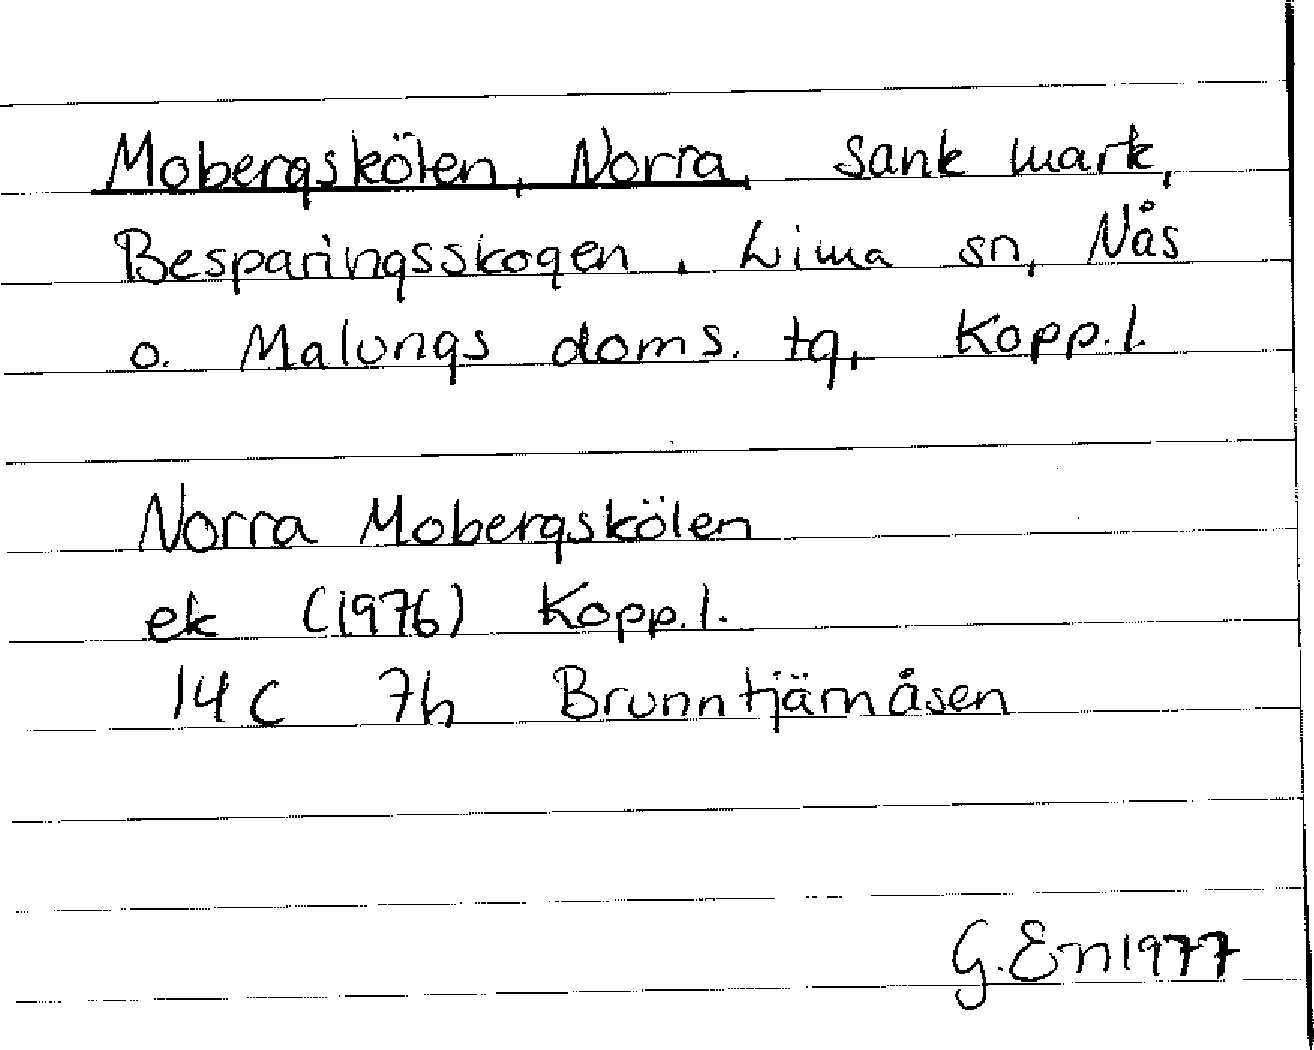 Mobergskölen, Norra, sank mark,
Besparingsskogen, Lima sn, Nås
o. Malungs doms. tg, Kopp.l.
Norra Mobergskölen
ek (1976) Kopp.l.
14 C 7h Brunntjärnåsen
G. En 1977